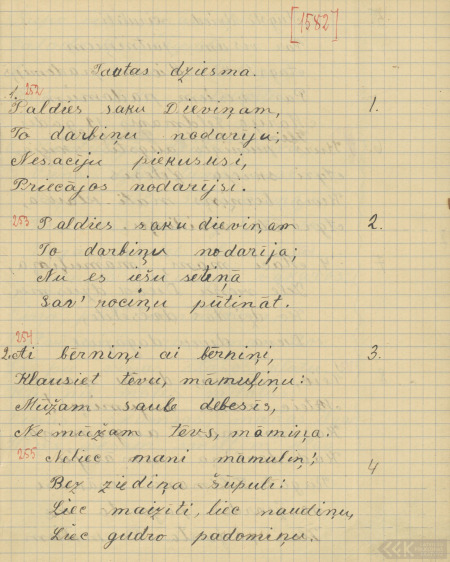 [1582]
Tautas dziesma.
1. 252
Paldies saku Dieviņam, 1.
To darbiņu nodarīju;
Nesacīju piekususi,
Priecājos nodarījsi.
253 Paldies saku dieviņam 2.
To darbiņu nodarīja;
Nu es iešu setiņā
Sav' rociņu pūtināt.
254
2. Ai bērniņi ai bērniņi, 3.
Klausiet tēvu, māmuļiņu:
Mūžam saule debesīs,
Ne mūžam tēvs, māmiņa.
255 Neliec mani māmuliņ'; 4
Bez ziediņa šūpulī:
Liec maizīti, liec naudiņu,
Liec gudro padomiņu.